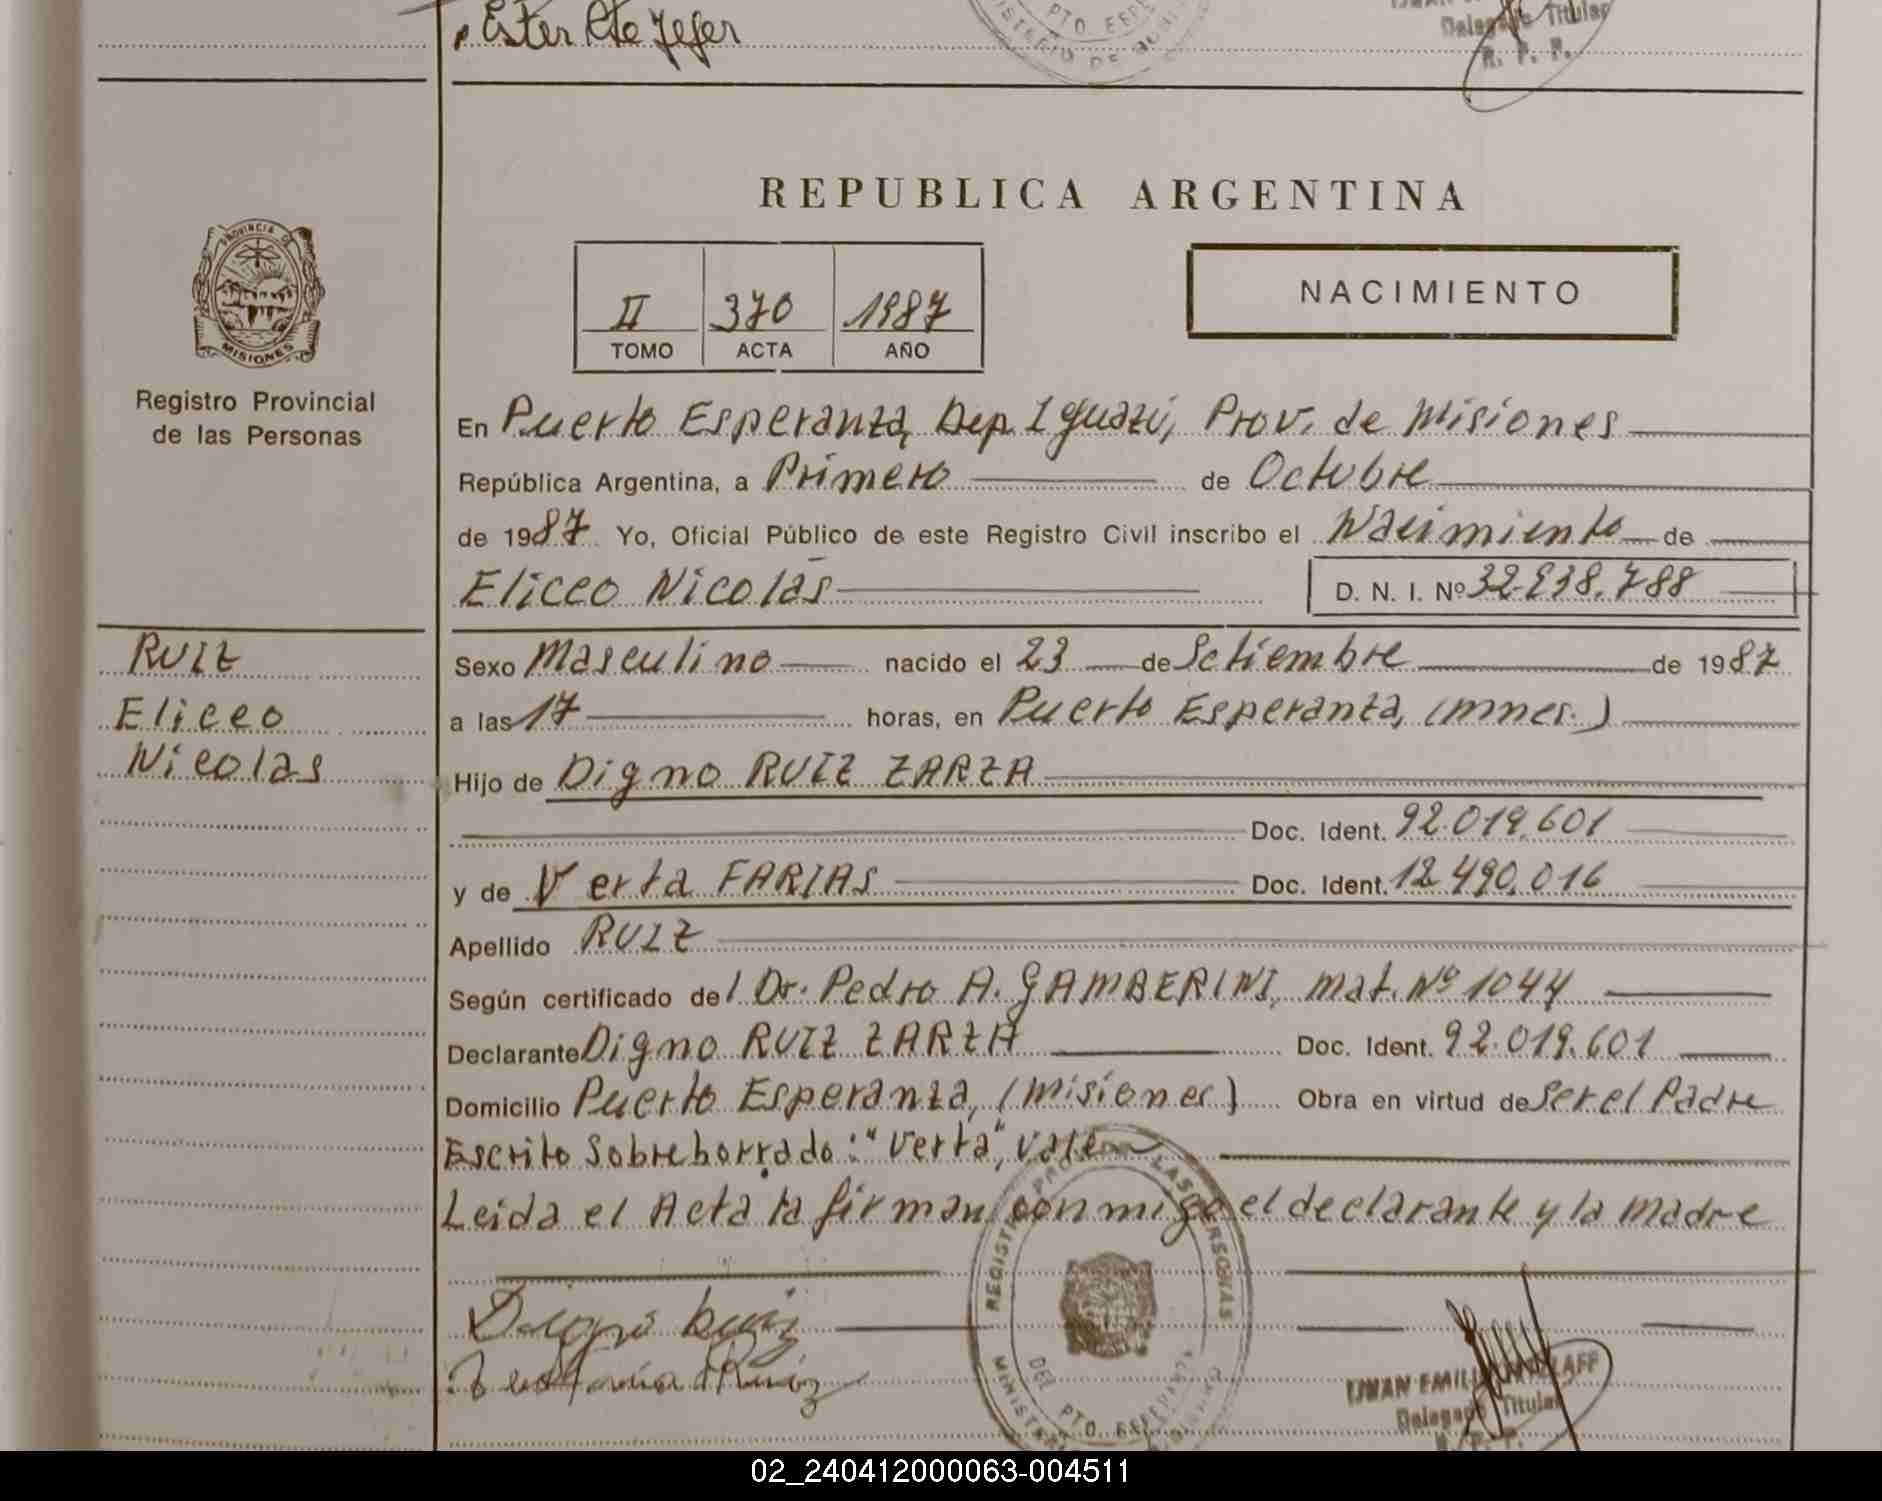 Ester
PTO. ESPE
Delegado Titular
R. P. P.
REPUBLICA ARGENTINA
PROVINCIA DE
MISIONES
II 370 1987
TOMO ACTA AÑO
NACIMIENTO
Registro Provincial
de las Personas
En Puerto Esperanza, Dep. Iguazú, Prov. de Misiones
República Argentina, a Primero de Octubre
de 1987 Yo, Oficial Público de este Registro Civil inscribo el Nacimiento de
Eliceo Nicolás D. N. I. Nº 32.838.788
RUIZ
Eliceo
Nicolas
Sexo Masculino nacido el 23 de Setiembre de 1987
a las 17 horas, en Puerto Esperanza, (mnes.)
Hijo de Digno RUIZ ZARZA
Doc. Ident. 92.019.601
y de Verta FARIAS Doc. Ident. 12.490.016
Apellido RUIZ
Según certificado del Dr. Pedro A. GAMBERINI, mat. Nº 1044
Declarante Digno RUIZ ZARZA Doc. Ident. 92.019.601
Domicilio Puerto Esperanza, (Misiones) Obra en virtud de Ser el Padre
Escrito Sobreborrado: "Verta", vale
Leida el Acta la firman conmigo el declarante y la madre
REGISTRO PROV. DE LAS PERSONAS
DEL PTO. ESPERANZA
Ruiz
Delegado Titular
R. P. P.
02_240412000063-004511